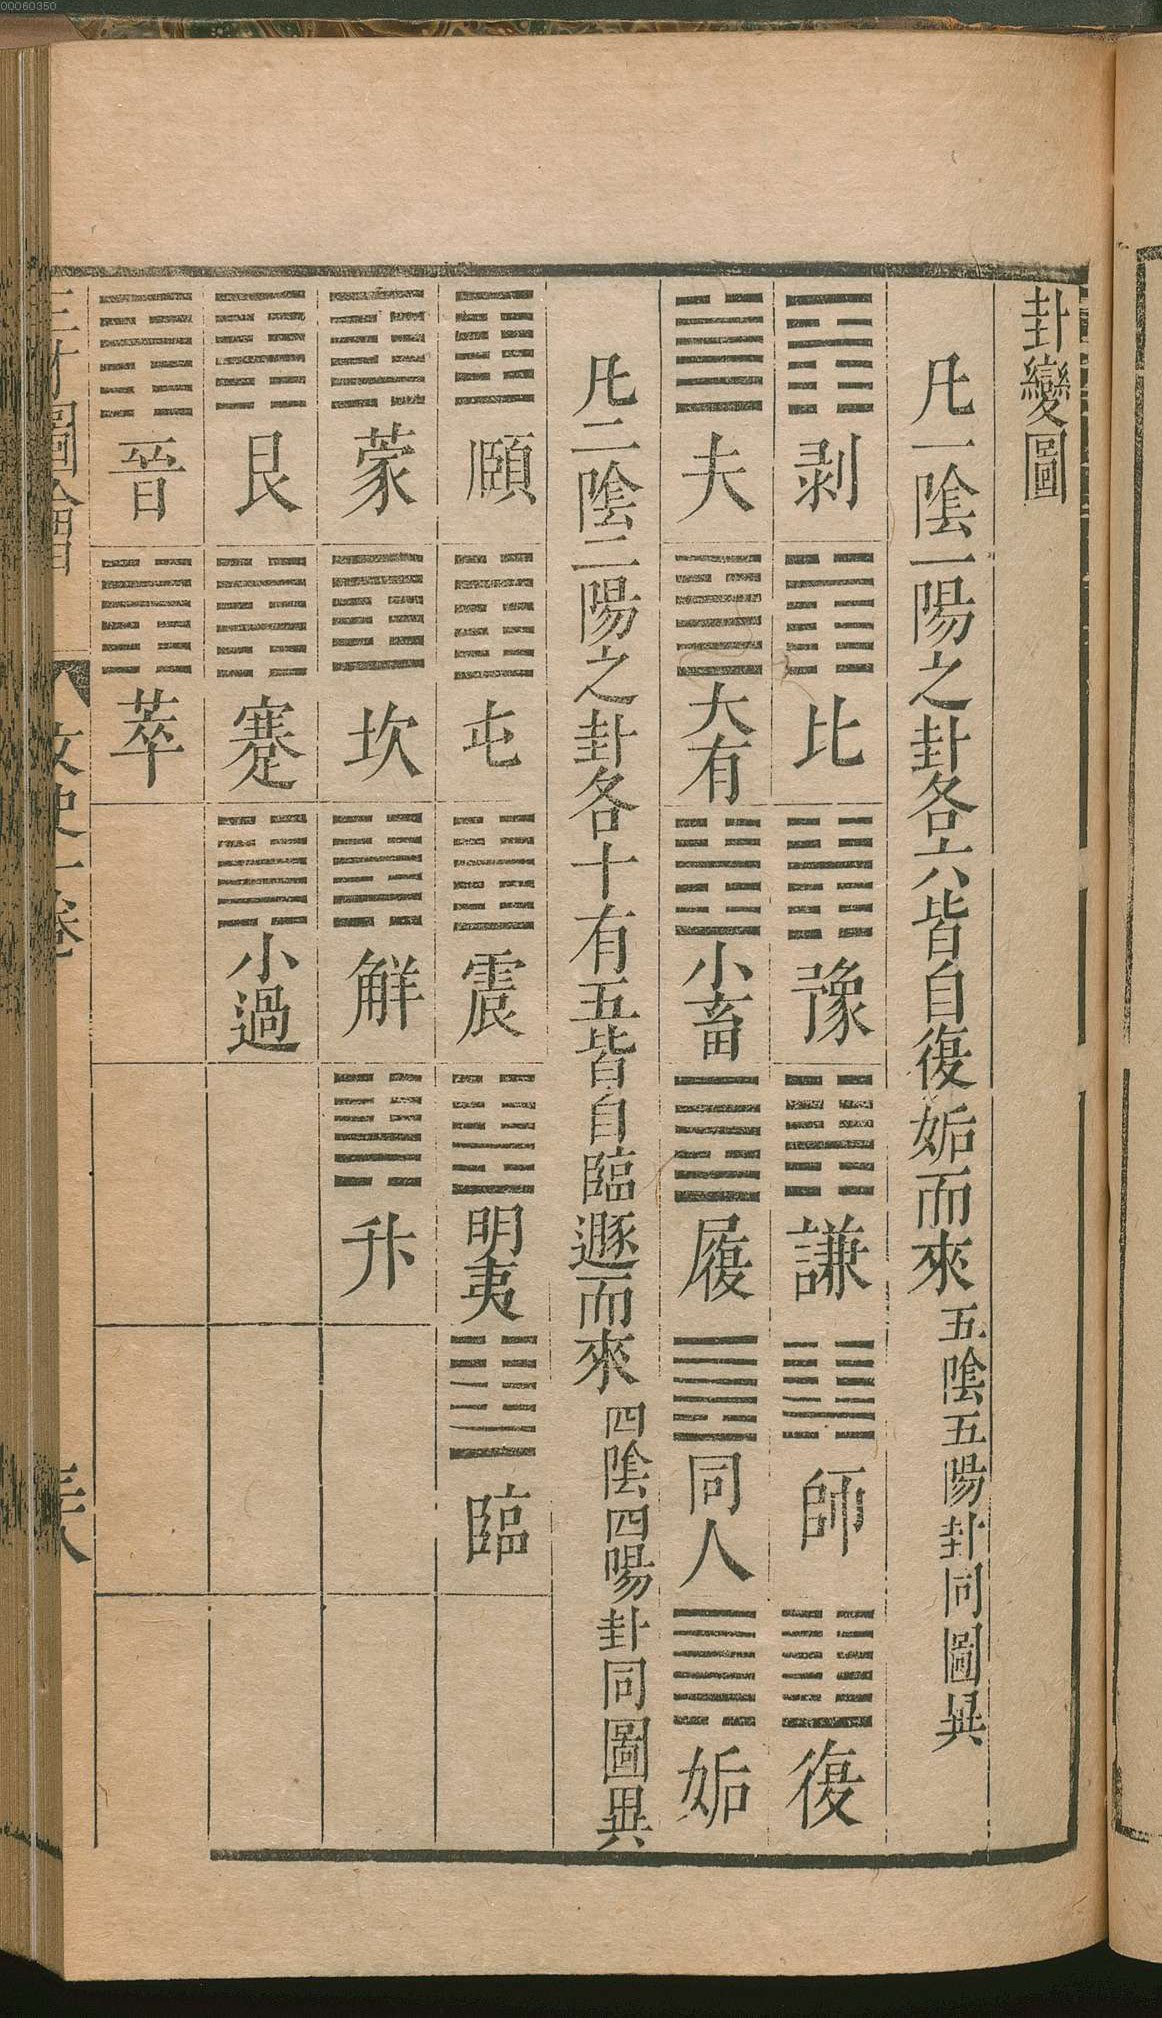 卦變圖
凡一陰一陽之卦各六皆自復姤而來 五陰五陽卦同圖異
剥 比 豫 謙 師 復
夬 大有 小畜 履 同人 姤
凡二陰二陽之卦各十有五皆自臨遯而來 四陰四陽卦同圖異
頤 屯 震 明夷 臨
蒙 坎 解 升
艮 蹇 小過
晉 萃
三才圖會 文史一卷
00060350